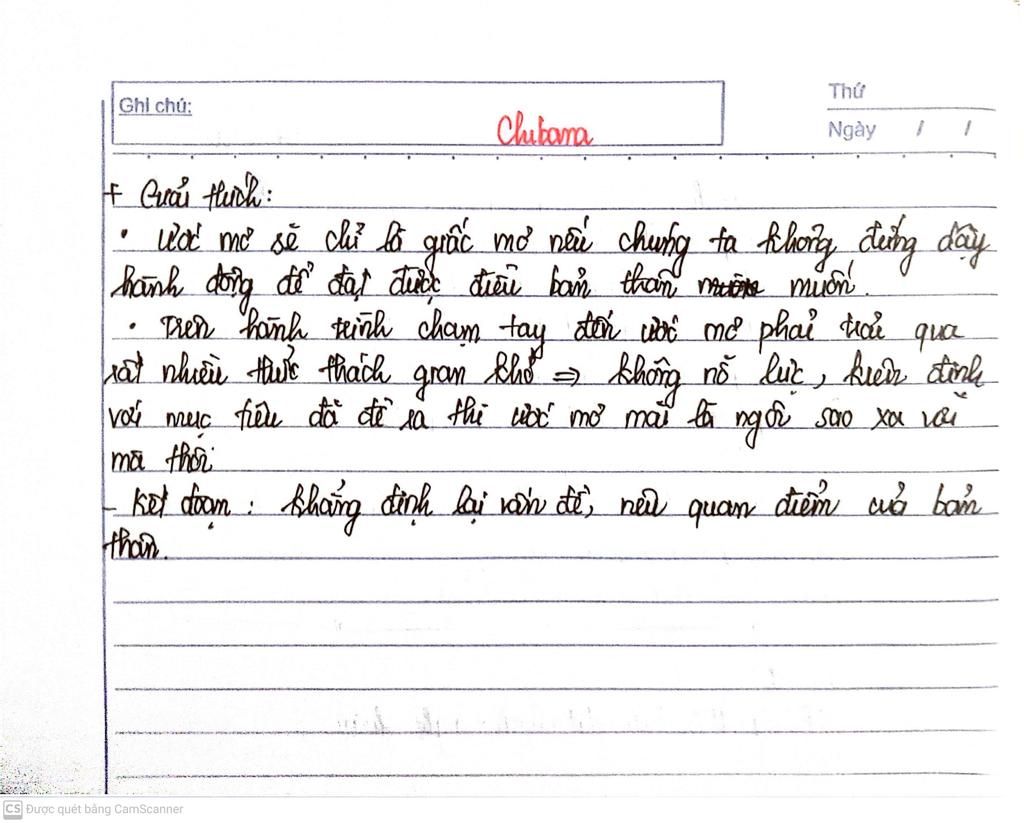 Ghi chú:
Chibana
Thứ
Ngày / /
+ Giải thích:
• Ước mơ sẽ chỉ là giấc mơ nếu chúng ta không đứng dậy
hành động để đạt được điều bản thân muốn.
• Trên hành trình chạm tay đến ước mơ phải trải qua
rất nhiều thức thách gian khổ ⇒ không nỗ lực, kiên định
với mục tiêu đã đề ra thì ước mơ mãi là ngôi sao xa vời
mà thôi
- Kết đoạn: khẳng định lại vấn đề, nêu quan điểm của bản
thân.
CS Được quét bằng CamScanner